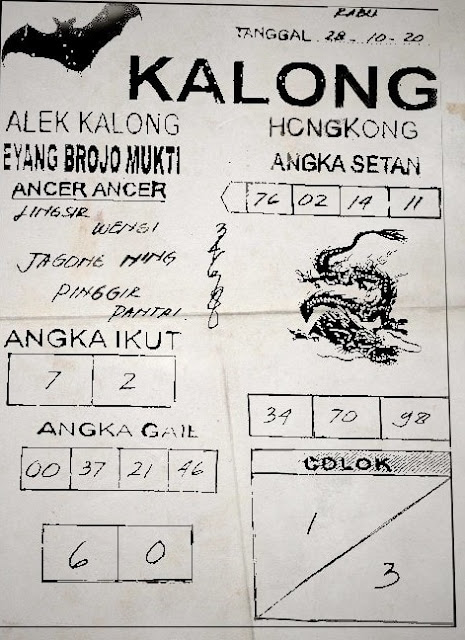 RABU
TANGGAL 28-10-20
KALONG
ALEK KALONG
EYANG BROJO MUKTI
ANCER ANCER
LINGSIR
WENGI
JAGONE NING
PINGGIR
PANTAI
ANGKA IKUT
7 2
ANGKA GAIL
00 37 21 46
6 0
HONGKONG
ANGKA SETAN
76 02 14 11
34 70 98
COLOK
1
3